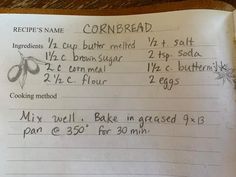 RECIPE'S NAME CORNBREAD
Ingredients 1/2 cup butter melted 1/2 t salt
1 1/2 c brown sugar 2 tsp. soda
2 c corn meal 1 1/2 c. buttermilk
2 1/2 c. flour 2 eggs
Cooking method
Mix well. Bake in greased 9x13
pan @ 350° for 30 min.